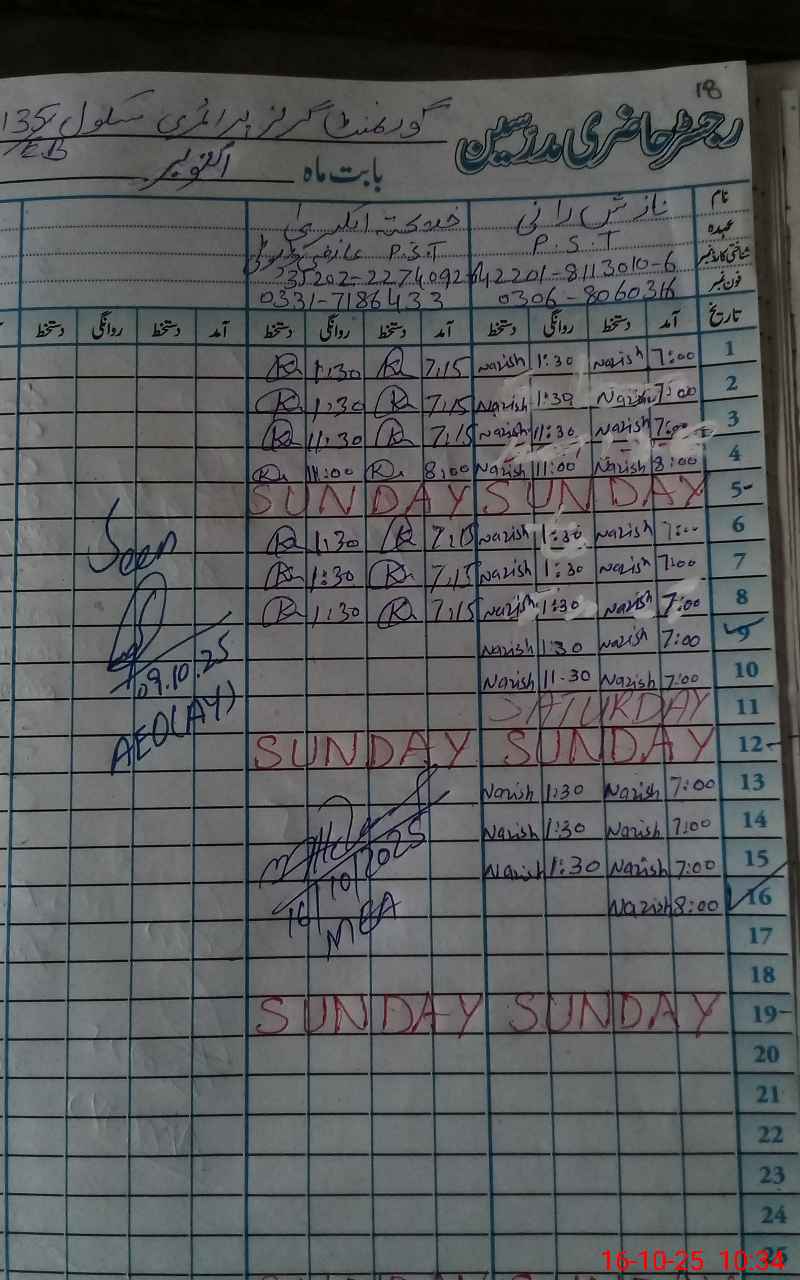 18
رجسٹر حاضری مدرسین گورنمنٹ گرلز پرائمری سکول 135/EB
بابت ماہ اکتوبر
نام نازش رانی خدیجتہ
عہدہ P.S.T P.S.T عارضی
شناختی کارڈ نمبر 42201-8113010-6 35202-2274092
فون نمبر 0306-8060316 0331-7186433
تاریخ آمد دستخط روانگی دستخط آمد دستخط روانگی دستخط آمد دستخط روانگی دستخط
1 7:00 Nazish 1:30 Nazish 7:15 1:30
2 7:00 Nazish 1:30 Nazish 7:15 1:30
3 7:00 Nazish 11:30 Nazish 7:15 11:30
4 8:00 Nazish 11:00 Nazish 8:00 11:00
5- SUNDAY SUNDAY
6 7:00 Nazish 1:30 Nazish 7:15 1:30
7 7:00 Nazish 1:30 Nazish 7:15 1:30
8 7:00 Nazish 1:30 Nazish 7:15 1:30
9 7:00 Nazish 1:30 Nazish
10 7:00 Nazish 11.30 Nazish
11 SATURDAY
12- SUNDAY SUNDAY
13 7:00 Nazish 1:30 Nazish
14 7:00 Nazish 1:30 Nazish
15 7:00 Nazish 1:30 Nazish
16 8:00 Nazish
17
18
19- SUNDAY SUNDAY
20
21
22
23
24
25
Seen
09.10.25
AEO(AY)
16/10/2025
MEA
16-10-25 10:34